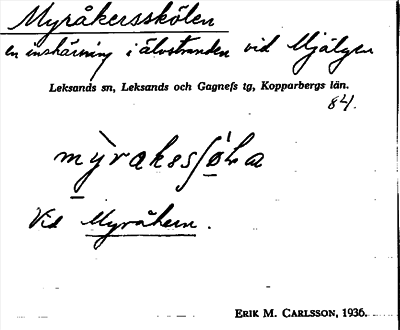 Myråkersskölen
en inskärning i älvstranden vid Mjälgen
Leksands sn, Leksands och Gagnefs tg, Kopparbergs län.
84.
Vid Myråkern.
ERIK M. CARLSSON, 1936.